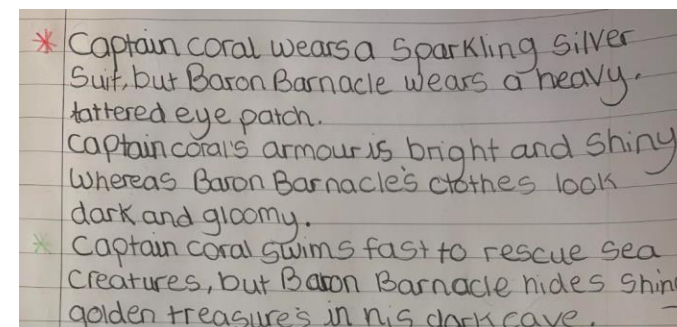 Captain coral wears a Sparkling Silver
Suit, but Baron Barnacle wears a heavy.
tattered eye patch.
Captain coral's armour is bright and shiny
Whereas Baron Barnacle's clothes look
dark and gloomy.
Captain coral swims fast to rescue sea
Creatures, but Baron Barnacle hides Shin
golden treasures in his dark cave.